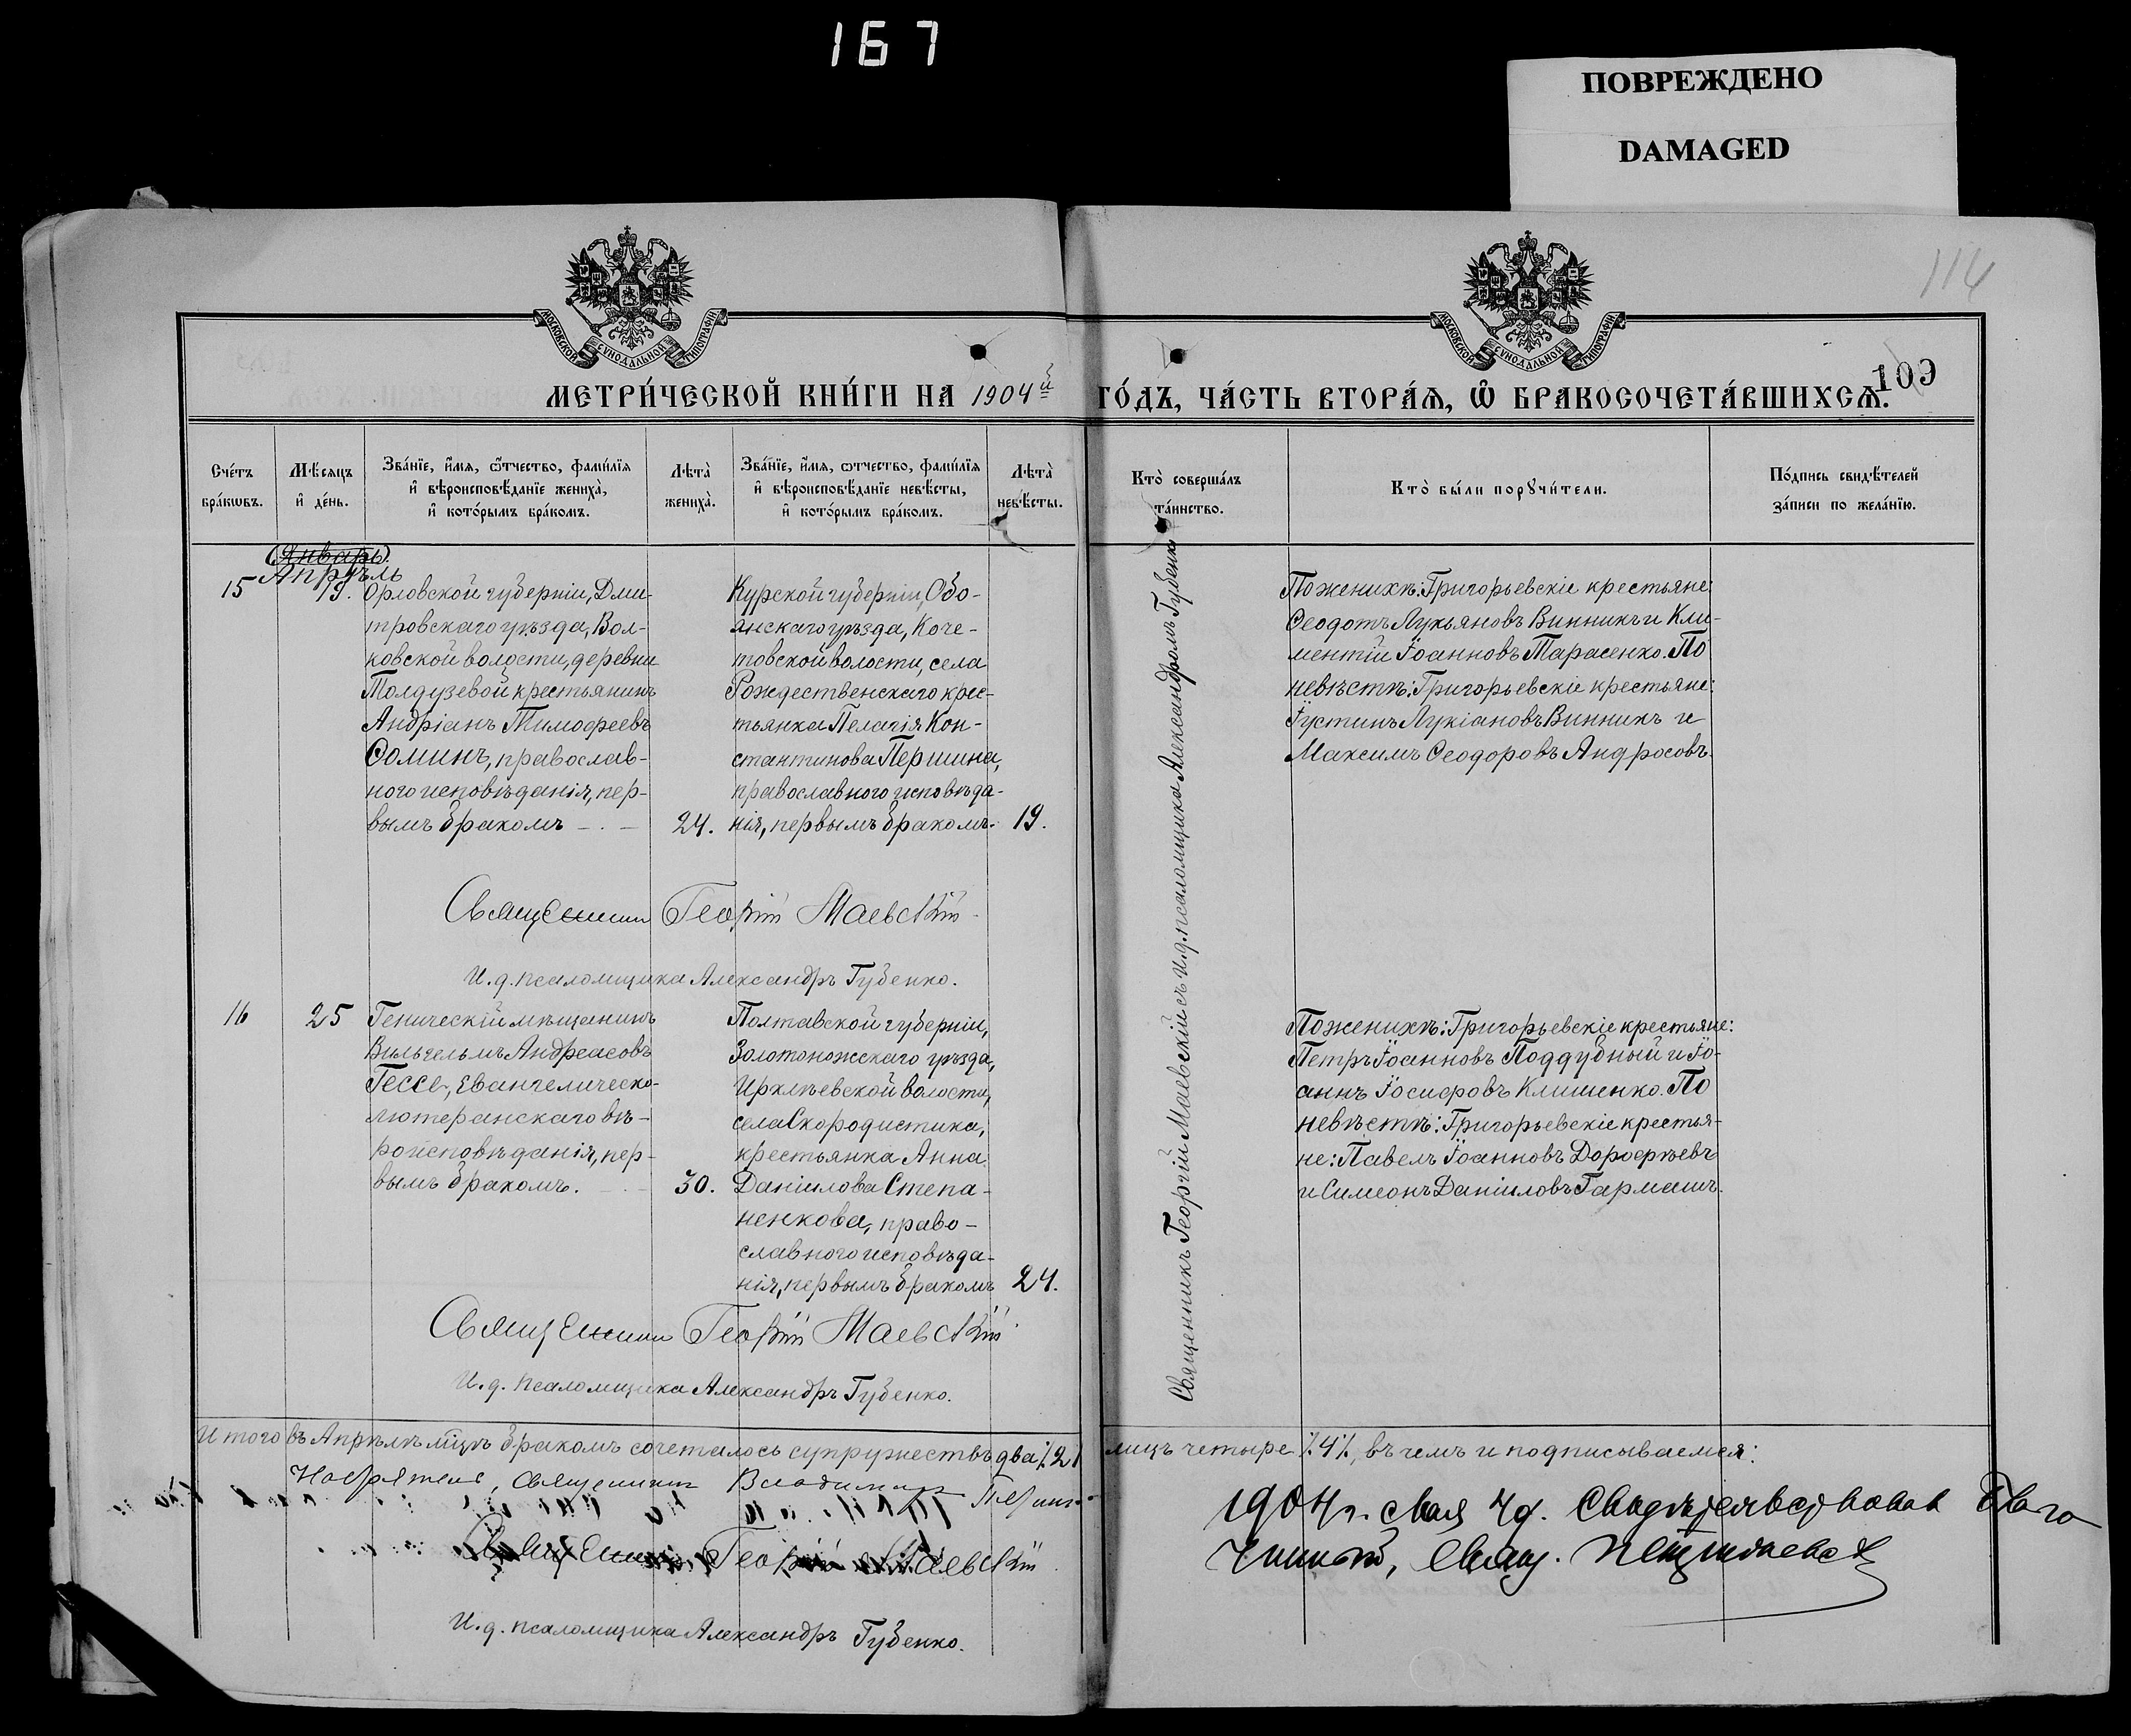 167
ПОВРЕЖДЕНО
DAMAGED
114
109
МОСКОВСКОЙ СѴНОДАЛЬНОЙ ТИПОГРАФІИ
МОСКОВСКОЙ СѴНОДАЛЬНОЙ ТИПОГРАФІИ
МЕТРИ́ЧЕСКОЙ КНИ́ГИ НА 1904й ГО́ДЪ, ЧА́СТЬ ВТОРА́Я, Ѽ БРАКОСОЧЕТА́ВШИХСЯ.
Сче́тъ бра́кѡвъ.
Мѣ́сяцъ и҆ де́нь.
Зва́нїе, и҆́мя, ѻ҆́тчество, фами́лїя
и҆ вѣроисповѣ́данїе жениха̀,
и҆ кото́рымъ бра́комъ.
Лѣта̀ жениха̀.
Зва́нїе, и҆́мя, ѻ҆́тчество, фами́лїя
и҆ вѣроисповѣ́данїе невѣ́сты,
и҆ кото́рымъ бра́комъ.
Лѣта̀ невѣ́сты.
Кто̀ соверша́лъ
та́инство.
Кто̀ бы́ли порꙋчи́тели.
По́дпись свидѣ́телей
за́писи по жела́нїю.
Январь.
Апрѣль
15
19.
Орловской губерніи, Дми-
тровскаго уѣзда, Вол-
ковской волости, деревни
Толдузевой крестьянинъ
Андріанъ Тимофеевъ
Ѳоминъ, православ-
ного исповѣданія, пер-
вымъ бракомъ — . —
24.
Курской губерніи, Обо-
янскаго уѣзда, Коче-
товской волости, села
Рождественскаго крес-
тьянка Пелагія Кон-
стантинова Першина,
православного исповѣда-
нія, первымъ бракомъ.
19.
Священникъ Георгій Маевскій съ и.д. псаломщика Александромъ Губенко
По женихѣ: Григорьевскіе крестьяне:
Ѳеодотъ Лукьяновъ Винникъ и Кли-
ментій Іоанновъ Тарасенко. По
невѣстѣ: Григорьевскіе крестьяне:
Іустинъ Лукіановъ Винникъ и
Максимъ Ѳеодоровъ Андросовъ.
Священникъ Георгій Маевскій
И. д. псаломщика Александръ Губенко.
16
25
Геническій мѣщанинъ
Вильгельмъ Андреасовъ
Гессе, Евангелическо-
лютеранскаго вѣ-
роисповѣданія, пер-
вымъ бракомъ. — . —
30.
Полтавской губерніи,
Золотоножскаго уѣзда,
Ирклѣевской волости,
села Скородистика,
крестьянка Анна
Даніилова Степа-
ненкова, право-
славного исповѣда-
нія, первымъ бракомъ
24.
По женихѣ: Григорьевскіе крестьяне:
Петръ Іоанновъ Поддубный и Іо-
аннъ Іосифовъ Клименко. По
невѣстѣ: Григорьевскіе крестья-
не: Павелъ Іоанновъ Дорофѣевъ
и Симеонъ Даніиловъ Гармашъ.
Священникъ Георгій Маевскій
И. д. псаломщика Александръ Губенко.
Итого въ Апрѣлѣ мѣсяцѣ бракомъ сочеталось супружествъ два /.2/ лицъ четыре /.4/., въ чемъ и подписываемся:
Настоятель, Священникъ Владимиръ
Священникъ Георгій Маевскій
И. д. псаломщика Александръ Губенко.
1904 г. Мая 7 д. Свидѣтельствовалъ Благо
чинный, Свящ.